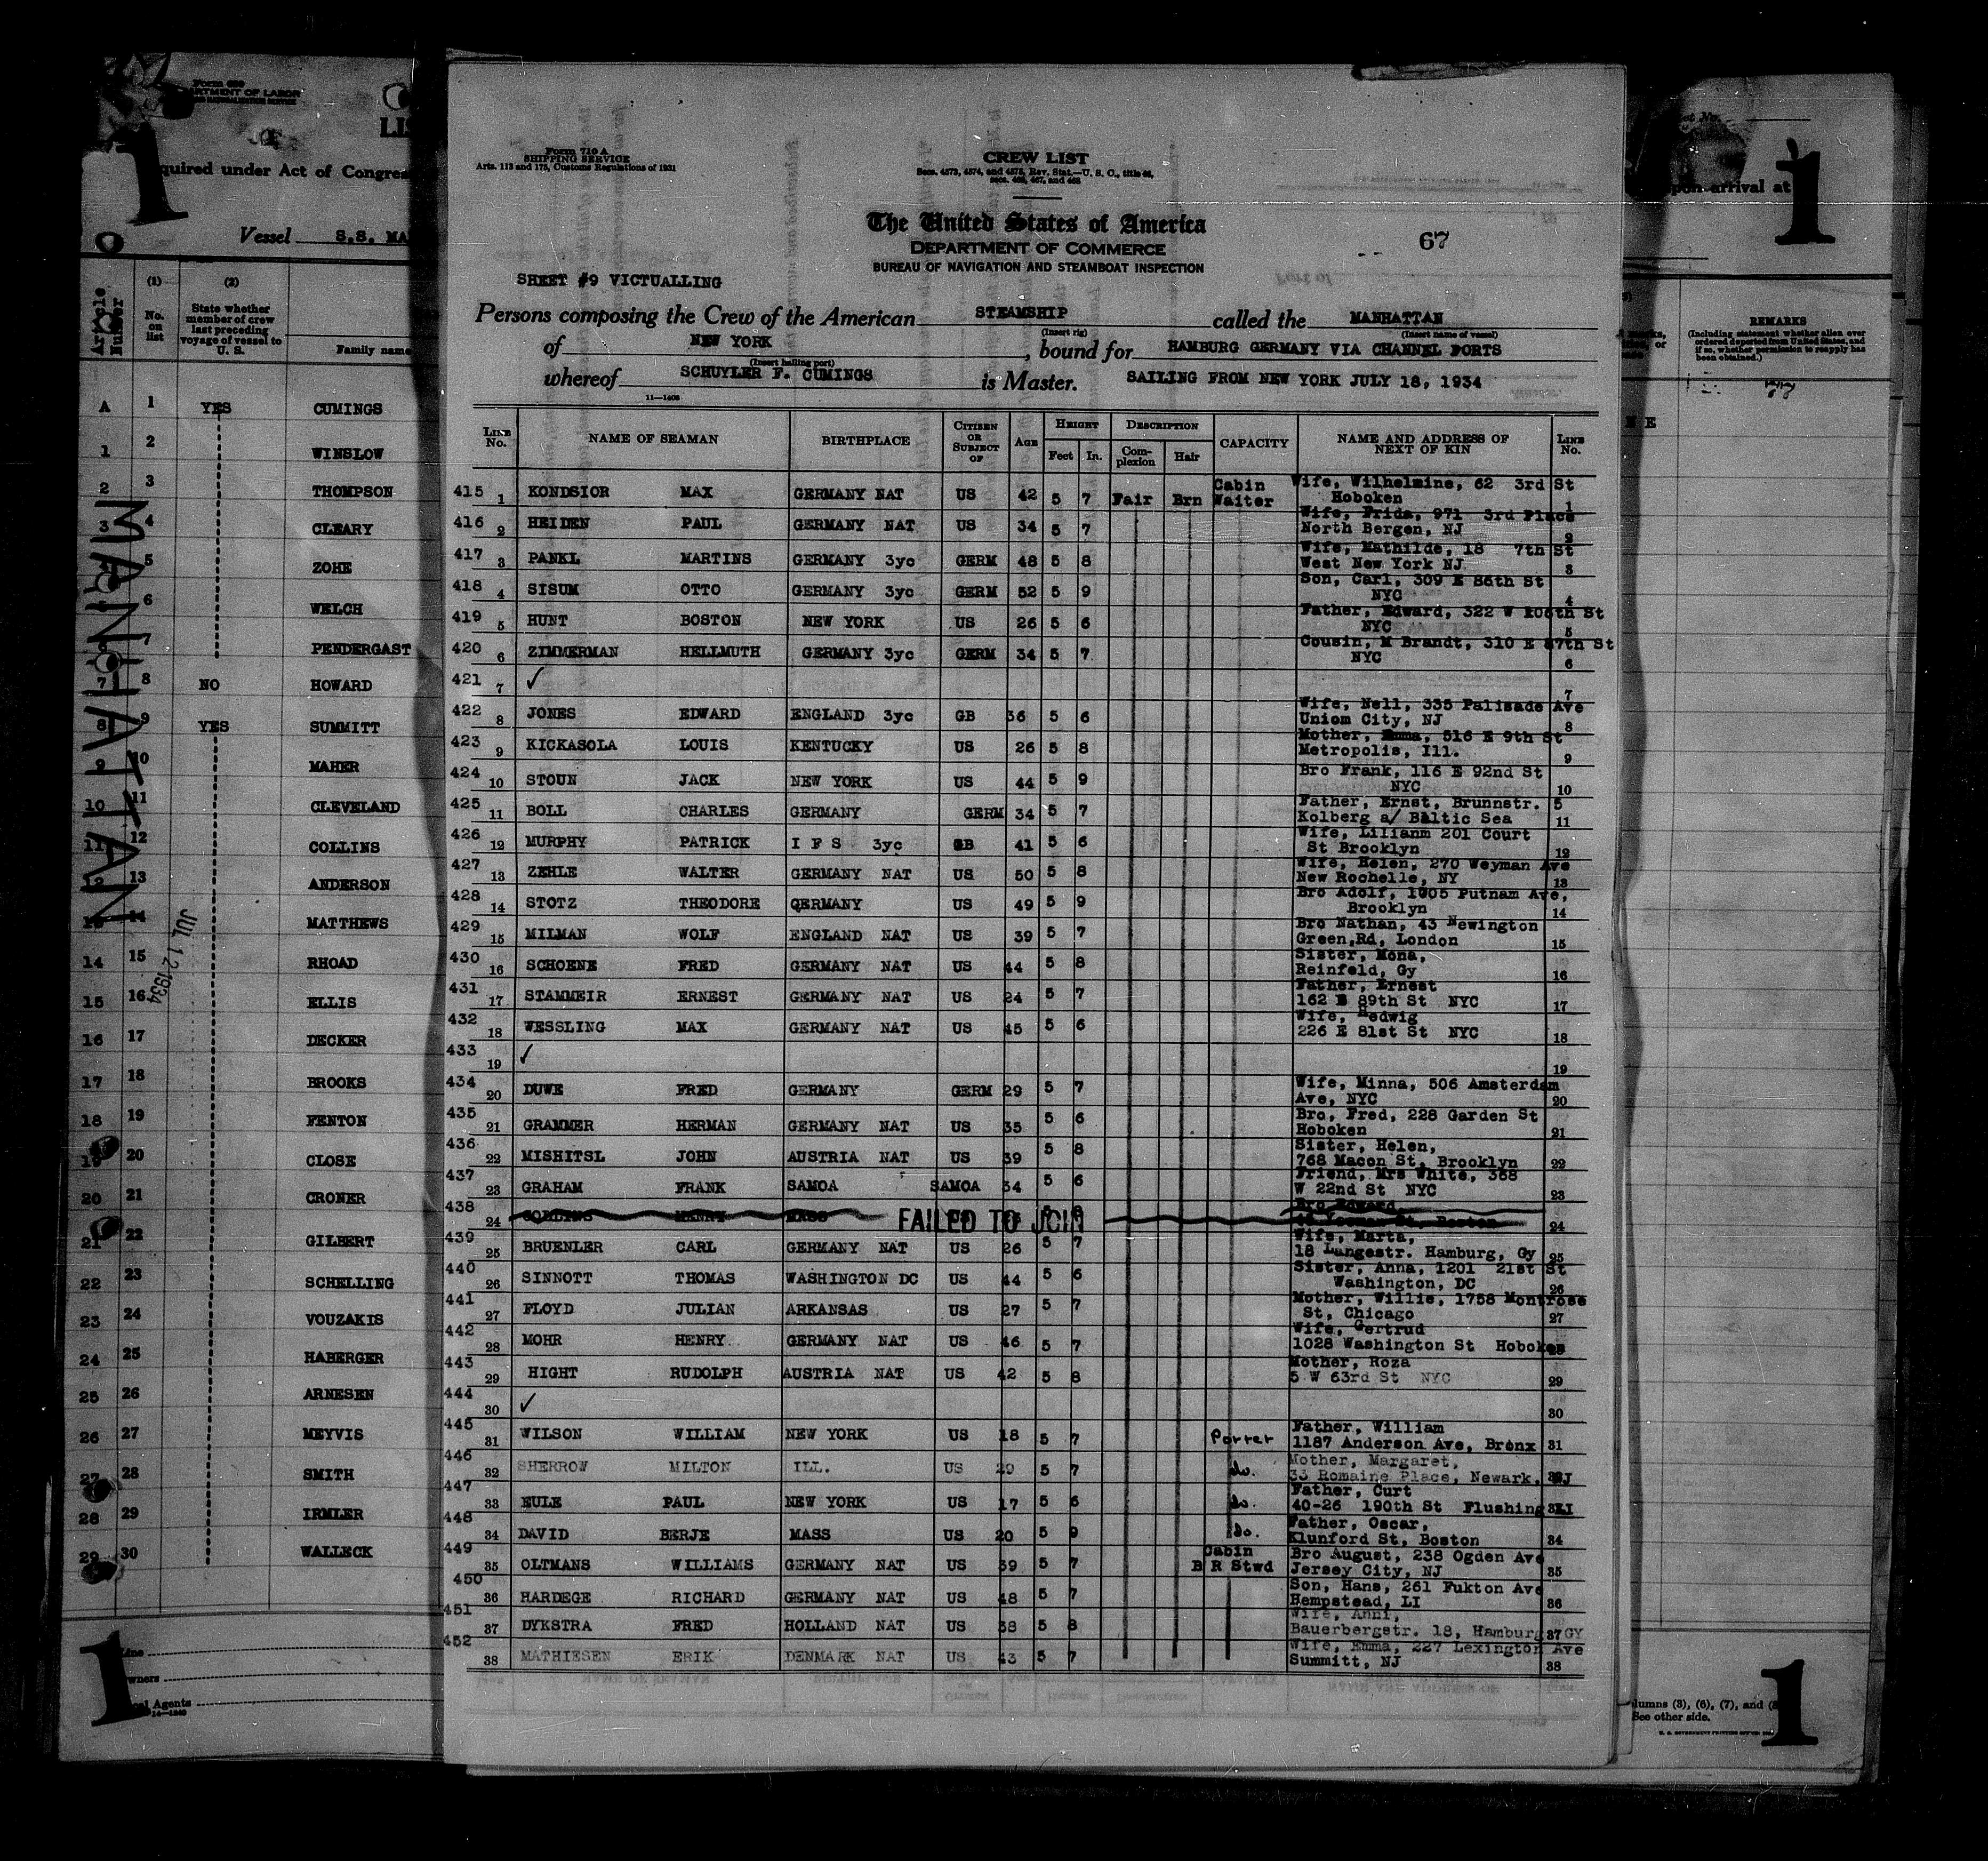 Form 710 A
SHIPPING SERVICE
Arts. 113 and 175, Customs Regulations of 1931
CREW LIST
Secs. 4573, 4574, and 4575, Rev. Stat.—U. S. C., title 46,
secs. 465, 467, and 468
The United States of America
DEPARTMENT OF COMMERCE
BUREAU OF NAVIGATION AND STEAMBOAT INSPECTION
67
SHEET #9 VICTUALLING
Persons composing the Crew of the American STEAMSHIP called the MANHATTAN
(Insert rig) (Insert name of vessel)
of NEW YORK , bound for HAMBURG GERMANY VIA CHANNEL PORTS
(Insert hailing port)
whereof SCHUYLER F. CUMINGS is Master. SAILING FROM NEW YORK JULY 18, 1934
11—1408
LINE No. NAME OF SEAMAN BIRTHPLACE CITIZEN OR SUBJECT OF AGE HEIGHT Feet In. DESCRIPTION Complexion Hair CAPACITY NAME AND ADDRESS OF NEXT OF KIN LINE No.
415 1 KONDSIOR MAX GERMANY NAT US 42 5 7 Fair Brn Cabin Waiter Wife, Wilhelmine, 62 3rd St Hoboken 1
416 2 HEIDEN PAUL GERMANY NAT US 34 5 7 Wife, Frida, 971 3rd Place North Bergen, NJ 2
417 3 PANKL MARTINS GERMANY 3yc GERM 48 5 8 Wife, Mathilde, 18 7th St West New York NJ 3
418 4 SISUM OTTO GERMANY 3yc GERM 52 5 9 Son, Carl, 309 E 86th St NYC 4
419 5 HUNT BOSTON NEW YORK US 26 5 6 Father, Edward, 322 W 106th St NYC 5
420 6 ZIMMERMAN HELLMUTH GERMANY 3yc GERM 34 5 7 Cousin, M Brandt, 310 E 87th St NYC 6
421 7 ✓ 7
422 8 JONES EDWARD ENGLAND 3yc GB 36 5 6 Wife, Nell, 335 Palisade Ave Uniom City, NJ 8
423 9 KICKASOLA LOUIS KENTUCKY US 26 5 8 Mother, Emma, 516 E 9th St Metropolis, Ill. 9
424 10 STOUN JACK NEW YORK US 44 5 9 Bro Frank, 116 E 92nd St NYC 10
425 11 BOLL CHARLES GERMANY GERM 34 5 7 Father, Ernst, Brunnstr. 5 Kolberg a/ Baltic Sea 11
426 12 MURPHY PATRICK I F S 3yc GB 41 5 6 Wife, Lilianm 201 Court St Brooklyn 12
427 13 ZEHLE WALTER GERMANY NAT US 50 5 8 Wife, Helen, 270 Weyman Ave New Rochelle, NY 13
428 14 STOTZ THEODORE GERMANY US 49 5 9 Bro Adolf, 1005 Putnam Ave, Brooklyn 14
429 15 MILMAN WOLF ENGLAND NAT US 39 5 7 Bro Nathan, 43 Newington Green,Rd, London 15
430 16 SCHOENE FRED GERMANY NAT US 44 5 8 Sister, Mona, Reinfeld, Gy 16
431 17 STAMMEIR ERNEST GERMANY NAT US 24 5 7 Father, Ernest 162 E 89th St NYC 17
432 18 WESSLING MAX GERMANY NAT US 45 5 6 Wife, Hedwig 226 E 81st St NYC 18
433 19 ✓ 19
434 20 DUWE FRED GERMANY GERM 29 5 7 Wife, Minna, 506 Amsterdam Ave, NYC 20
435 21 GRAMMER HERMAN GERMANY NAT US 35 5 6 Bro, Fred, 228 Garden St Hoboken 21
436 22 MISHITSL JOHN AUSTRIA NAT US 39 5 8 Sister, Helen, 768 Macon St, Brooklyn 22
437 23 GRAHAM FRANK SAMOA SAMOA 34 5 6 Friend, Mrs White, 358 W 22nd St NYC 23
438 24 COLLINS HENRY MASS FAILED TO JOIN Bro Edward, Boston 24
439 25 BRUENLER CARL GERMANY NAT US 26 5 7 Wife, Marta, 18 Langestr. Hamburg, Gy 25
440 26 SINNOTT THOMAS WASHINGTON DC US 44 5 6 Sister, Anna, 1201 21st St Washington, DC 26
441 27 FLOYD JULIAN ARKANSAS US 27 5 7 Mother, Willie, 1758 Montrose St, Chicago 27
442 28 MOHR HENRY GERMANY NAT US 46 5 7 Wife, Gertrud 1028 Washington St Hoboken
443 29 HIGHT RUDOLPH AUSTRIA NAT US 42 5 8 Mother, Roza 5 W 63rd St NYC 29
444 30 ✓ 30
445 31 WILSON WILLIAM NEW YORK US 18 5 7 Porter Father, William 1187 Anderson Ave, Bronx 31
446 32 SHERROW MILTON ILL. US 29 5 7 do. Mother, Margaret, 33 Romaine Place, Newark, NJ
447 33 EULE PAUL NEW YORK US 17 5 6 do. Father, Curt 40-26 190th St Flushing LI
448 34 DAVID BERJE MASS US 20 5 9 do. Father, Oscar, Klunford St, Boston 34
449 35 OLTMANS WILLIAMS GERMANY NAT US 39 5 7 Cabin B R Stwd Bro August, 238 Ogden Ave Jersey City, NJ 35
450 36 HARDEGE RICHARD GERMANY NAT US 48 5 7 Son, Hans, 261 Fukton Ave Hempstead, LI 36
451 37 DYKSTRA FRED HOLLAND NAT US 38 5 8 Wife, Anni, Bauerbergstr. 18, Hamburg GY 37
452 38 MATHIESEN ERIK DENMARK NAT US 43 5 7 Wife, Emma, 227 Lexington Ave Summitt, NJ 38
1
LIS
quired under Act of Congres
Vessel S.S. MA
Article Number (1) No. on list (2) State whether member of crew last preceding voyage of vessel to U. S. Family name
A 1 YES CUMINGS
1 2 WINSLOW
2 3 THOMPSON
3 4 CLEARY
5 ZOHE
6 WELCH
7 PENDERGAST
7 8 NO HOWARD
8 9 YES SUMMITT
9 10 MAHER
10 11 CLEVELAND
11 12 COLLINS
12 13 ANDERSON
14 MATTHEWS
14 15 RHOAD
15 16 ELLIS
16 17 DECKER
17 18 BROOKS
18 19 FENTON
19 20 CLOSE
20 21 CRONER
21 22 GILBERT
22 23 SCHELLING
23 24 VOUZAKIS
24 25 HABERGER
25 26 ARNESEN
26 27 MEYVIS
27 28 SMITH
28 29 IRMLER
29 30 WALLECK
MANHATTAN
JUL 12 1934
1
Line
wners
cal Agents
14—1240
1
pon arrival at
REMARKS
(Including statement whether alien ever ordered deported from United States, and if so, whether permission to reapply has been obtained.)
lumns (3), (6), (7), and (8
See other side.
1